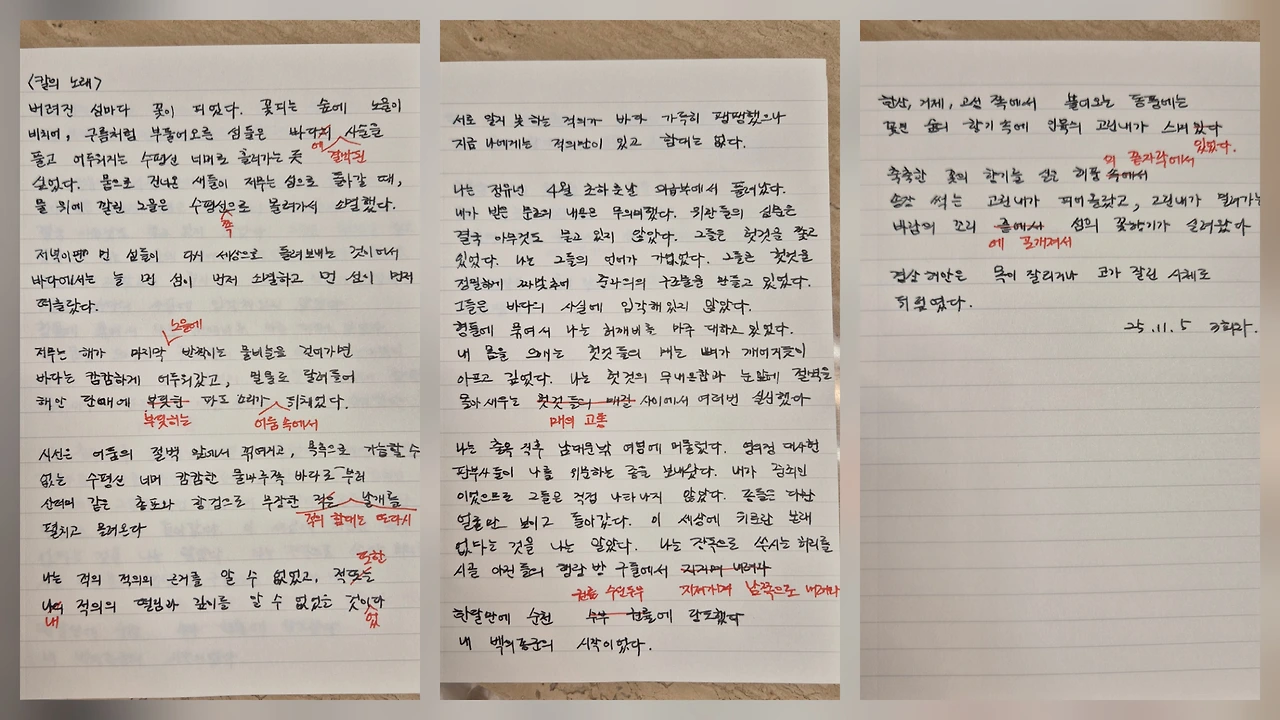 <칼의 노래>
버려진 섬마다 꽃이 피었다. 꽃피는 숲에 노을이
비치어, 구름처럼 부풀어오른 섬들은 바다에 사슬을
에 결박된
풀고 어두워지는 수평선 너머로 흘러가는 듯
싶었다. 뭍으로 건너온 새들이 저무는 섬으로 돌아갈 때,
물 위에 깔린 노을은 수평선으로 몰려가서 소멸했다.
쪽
저녁이면 먼 섬들이 다시 세상으로 돌려보내는 것이어서
바다에서는 늘 먼 섬이 먼저 소멸하고 먼 섬이 먼저
떠올랐다.
노을에
저무는 해가 마지막 반짝이는 물비늘을 걷어가면
바다는 캄캄하게 어두워갔고, 밀물로 달려들어
해안 단애에 부딪친 파도 소리가 뒤채었다.
부딪히는 어둠 속에서
시선은 어둠의 절벽 앞에서 꺾여지고, 목측으로 가늠할 수
없는 수평선 너머 캄캄한 물마루쪽 바다로부터
산더미 같은 총포와 창검으로 무장한 적은 날개를
적의 함대는 또다시
펼치고 몰려온다
또한
나는 적의 적의의 근거를 알 수 없었고, 적또는
나의 적의의 떨림과 깊이를 알 수 없었을 것이다
내 없
서로 알지 못하는 적의가 바다 가득히 팽팽했으나
지금 나에게는 적의만이 있고 함대는 없다.
나는 정유년 4월 초하룻날 의금부에서 풀려났다.
내가 받은 문초의 내용은 무의미했다. 위관들의 심문은
결국 아무것도 묻고 있지 않았다. 그들은 헛것을 쫓고
있었다. 나는 그들의 언어가 가엾었다. 그들은 헛것을
정밀하게 짜맞추어 충과의의 구조물을 만들고 있었다.
그들은 바다의 사실에 입각해있지 않았다.
형틀에 묶여서 나는 허깨비를 마주 대하고 있었다.
내 몸을 으깨는 헛것들의 매는 뼈가 깨어지듯이
아프고 깊었다. 나는 헛것의 무내용함과 눈앞에 절벽을
몰아세우는 헛것들의 매질 사이에서 여러번 실신했다
매의 고통
나는 출옥 직후 남대문밖 여염에 머물렀다. 영의정 대사헌
판부사들이 나를 위문하는 종을 보내왔다. 내가 중죄인
이었으므로 그들은 직접 나타나지 않았다. 종들은 다만
얼굴만 보이고 돌아갔다. 이 세상에 위로란 본래
없다는 것을 나는 알았다. 나는 장독으로 쑤시는 허리를
시골 아전들의 행랑 방 구들에서 지지며 내려와
권률 수인부 지져가며 남쪽으로 내려와
한달만에 순천 권률에 당도했다
내 백의종군의 시작이었다.
한산, 거제, 고성 쪽에서 불어오는 동풍에는
꽃핀 숲의 향기 속에 인육의 고린내가 스며 왔다
있었다.
의 끝자락에서
축축한 꽃의 향기를 실은 해풍 속에서
송장 썩는 고린내가 피어올랐고, 고린내가 밀려가는
바람의 꼬리 틈에서 섬의 꽃향기가 실려왔다
에 포개져서
경상 해안은 목이 잘리거나 코가 잘린 시체로
뒤덮였다.
25. 11. 5